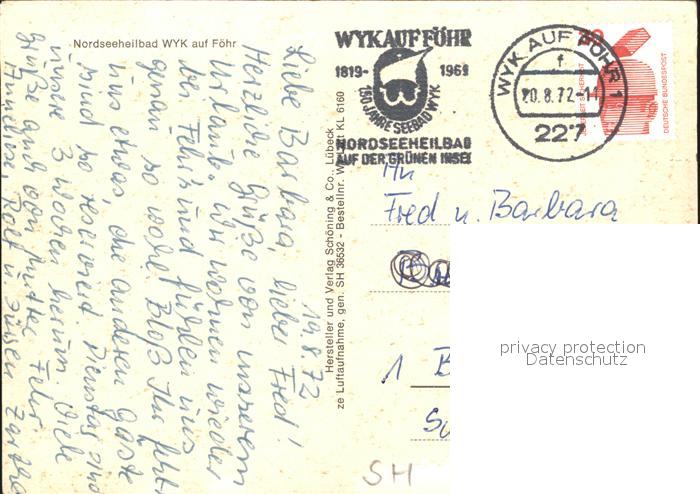 Nordseeheilbad WYK auf Föhr
19.8.72
Liebe Barbara, lieber Fred!
Herzliche Grüße von unserem
Urlaub. Wir wohnen wieder
bei Fehr's und fühlen uns
genau so wohl. Bloß Ihr fehlt
uns etwas, die anderen Gäste
sind so reserviert. Dienstag sind
unsere 3 Wochen herum. Viele
Grüße auch von Mutter Fehr
Annelise, Rolf u.
Hersteller und Verlag Schöning & Co., Lübeck
ze Luftaufnahme, gen. SH 36532 - Bestellnr. KL 6160
WYK AUF FÖHR
1819- 1969
150 JAHRE SEEBAD WYK
NORDSEEHEILBAD
AUF DER GRÜNEN INSEL
WYK AUF FÖHR 1
f
20.8.72-11
227
DEUTSCHE BUNDESPOST
An
Fred u. Barbara
1 B
SH
privacy protection
Datenschutz